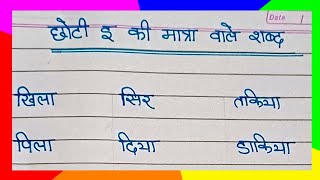 Date 1
छोटी इ की मात्रा वाले शब्द
खिला सिर तकिया
पिला दिया डाकिया